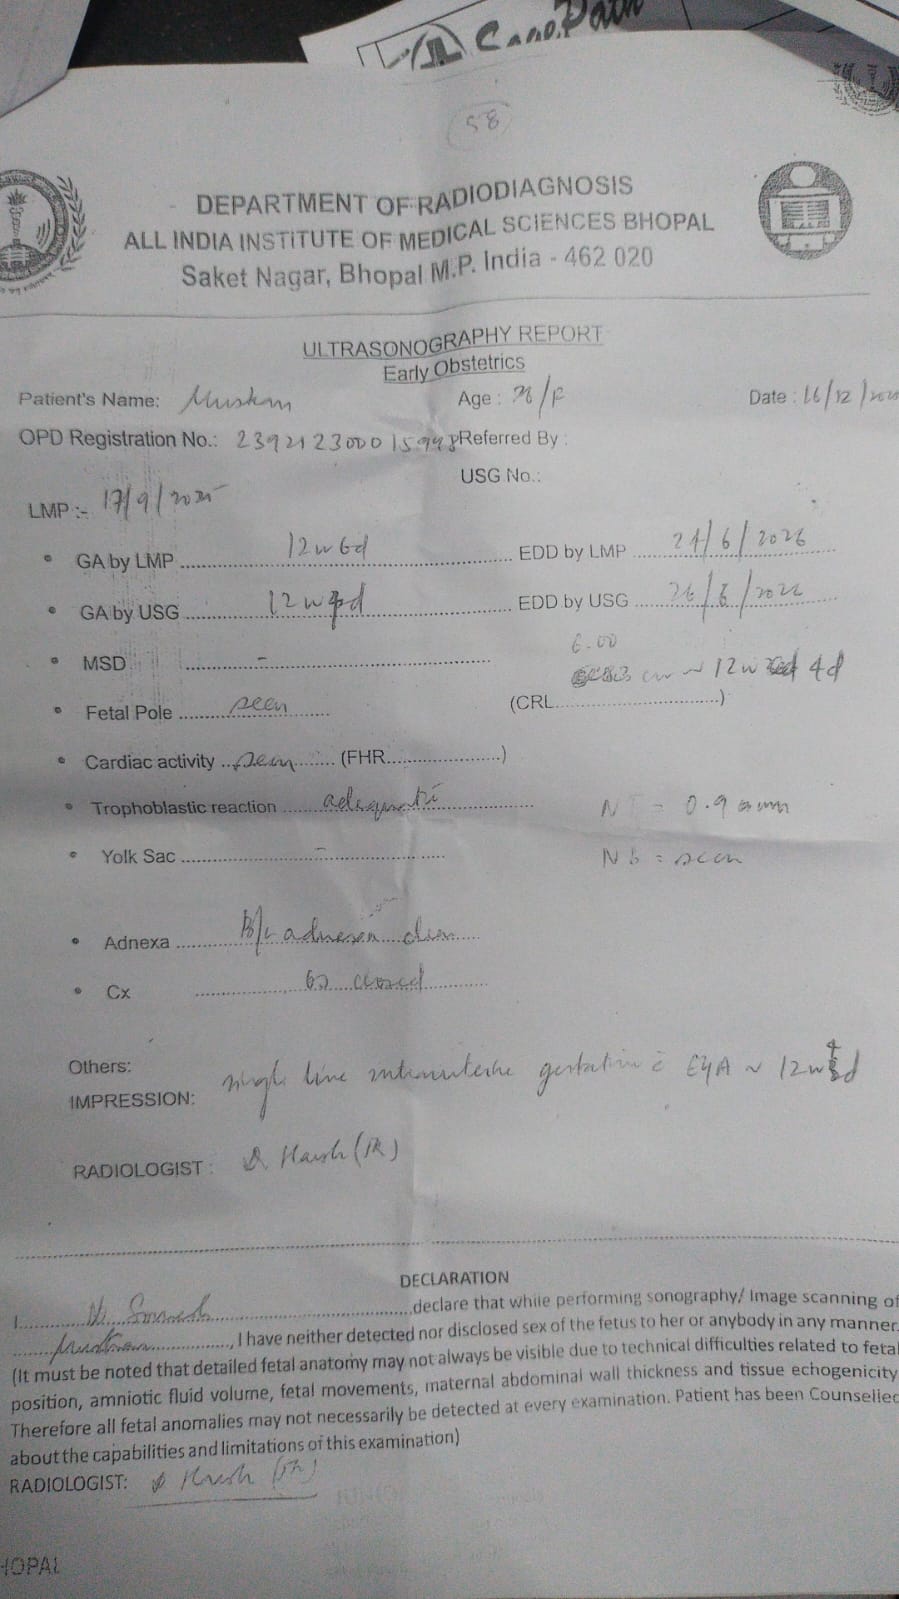 SagePath
58
DEPARTMENT OF RADIODIAGNOSIS
ALL INDIA INSTITUTE OF MEDICAL SCIENCES BHOPAL
Saket Nagar, Bhopal M.P. India - 462 020
ULTRASONOGRAPHY REPORT
Early Obstetrics
Patient's Name: Muskan Age : /F Date : 16/12/
OPD Registration No.: Referred By :
USG No.:
LMP :- 17/9/2025
GA by LMP 12w6d EDD by LMP 24/6/2026
GA by USG 12w4d EDD by USG 26/6/2026
MSD -
6.00
cm ~ 12w 4d
Fetal Pole seen (CRL)
Cardiac activity seen (FHR)
Trophoblastic reaction adequate NT - 0.9 mm
Yolk Sac - Nb = seen
Adnexa B/L adnexa clear
Cx os closed
Others:
IMPRESSION: single live intrauterine gestation c̄ EGA ~ 12w4d
RADIOLOGIST : Dr Harsh (JR)
DECLARATION
I declare that while performing sonography/ Image scanning of
Muskan, I have neither detected nor disclosed sex of the fetus to her or anybody in any manner.
(It must be noted that detailed fetal anatomy may not always be visible due to technical difficulties related to fetal
position, amniotic fluid volume, fetal movements, maternal abdominal wall thickness and tissue echogenicity
Therefore all fetal anomalies may not necessarily be detected at every examination. Patient has been Counselled
about the capabilities and limitations of this examination)
RADIOLOGIST: Dr Harsh (JR)
HOPAL